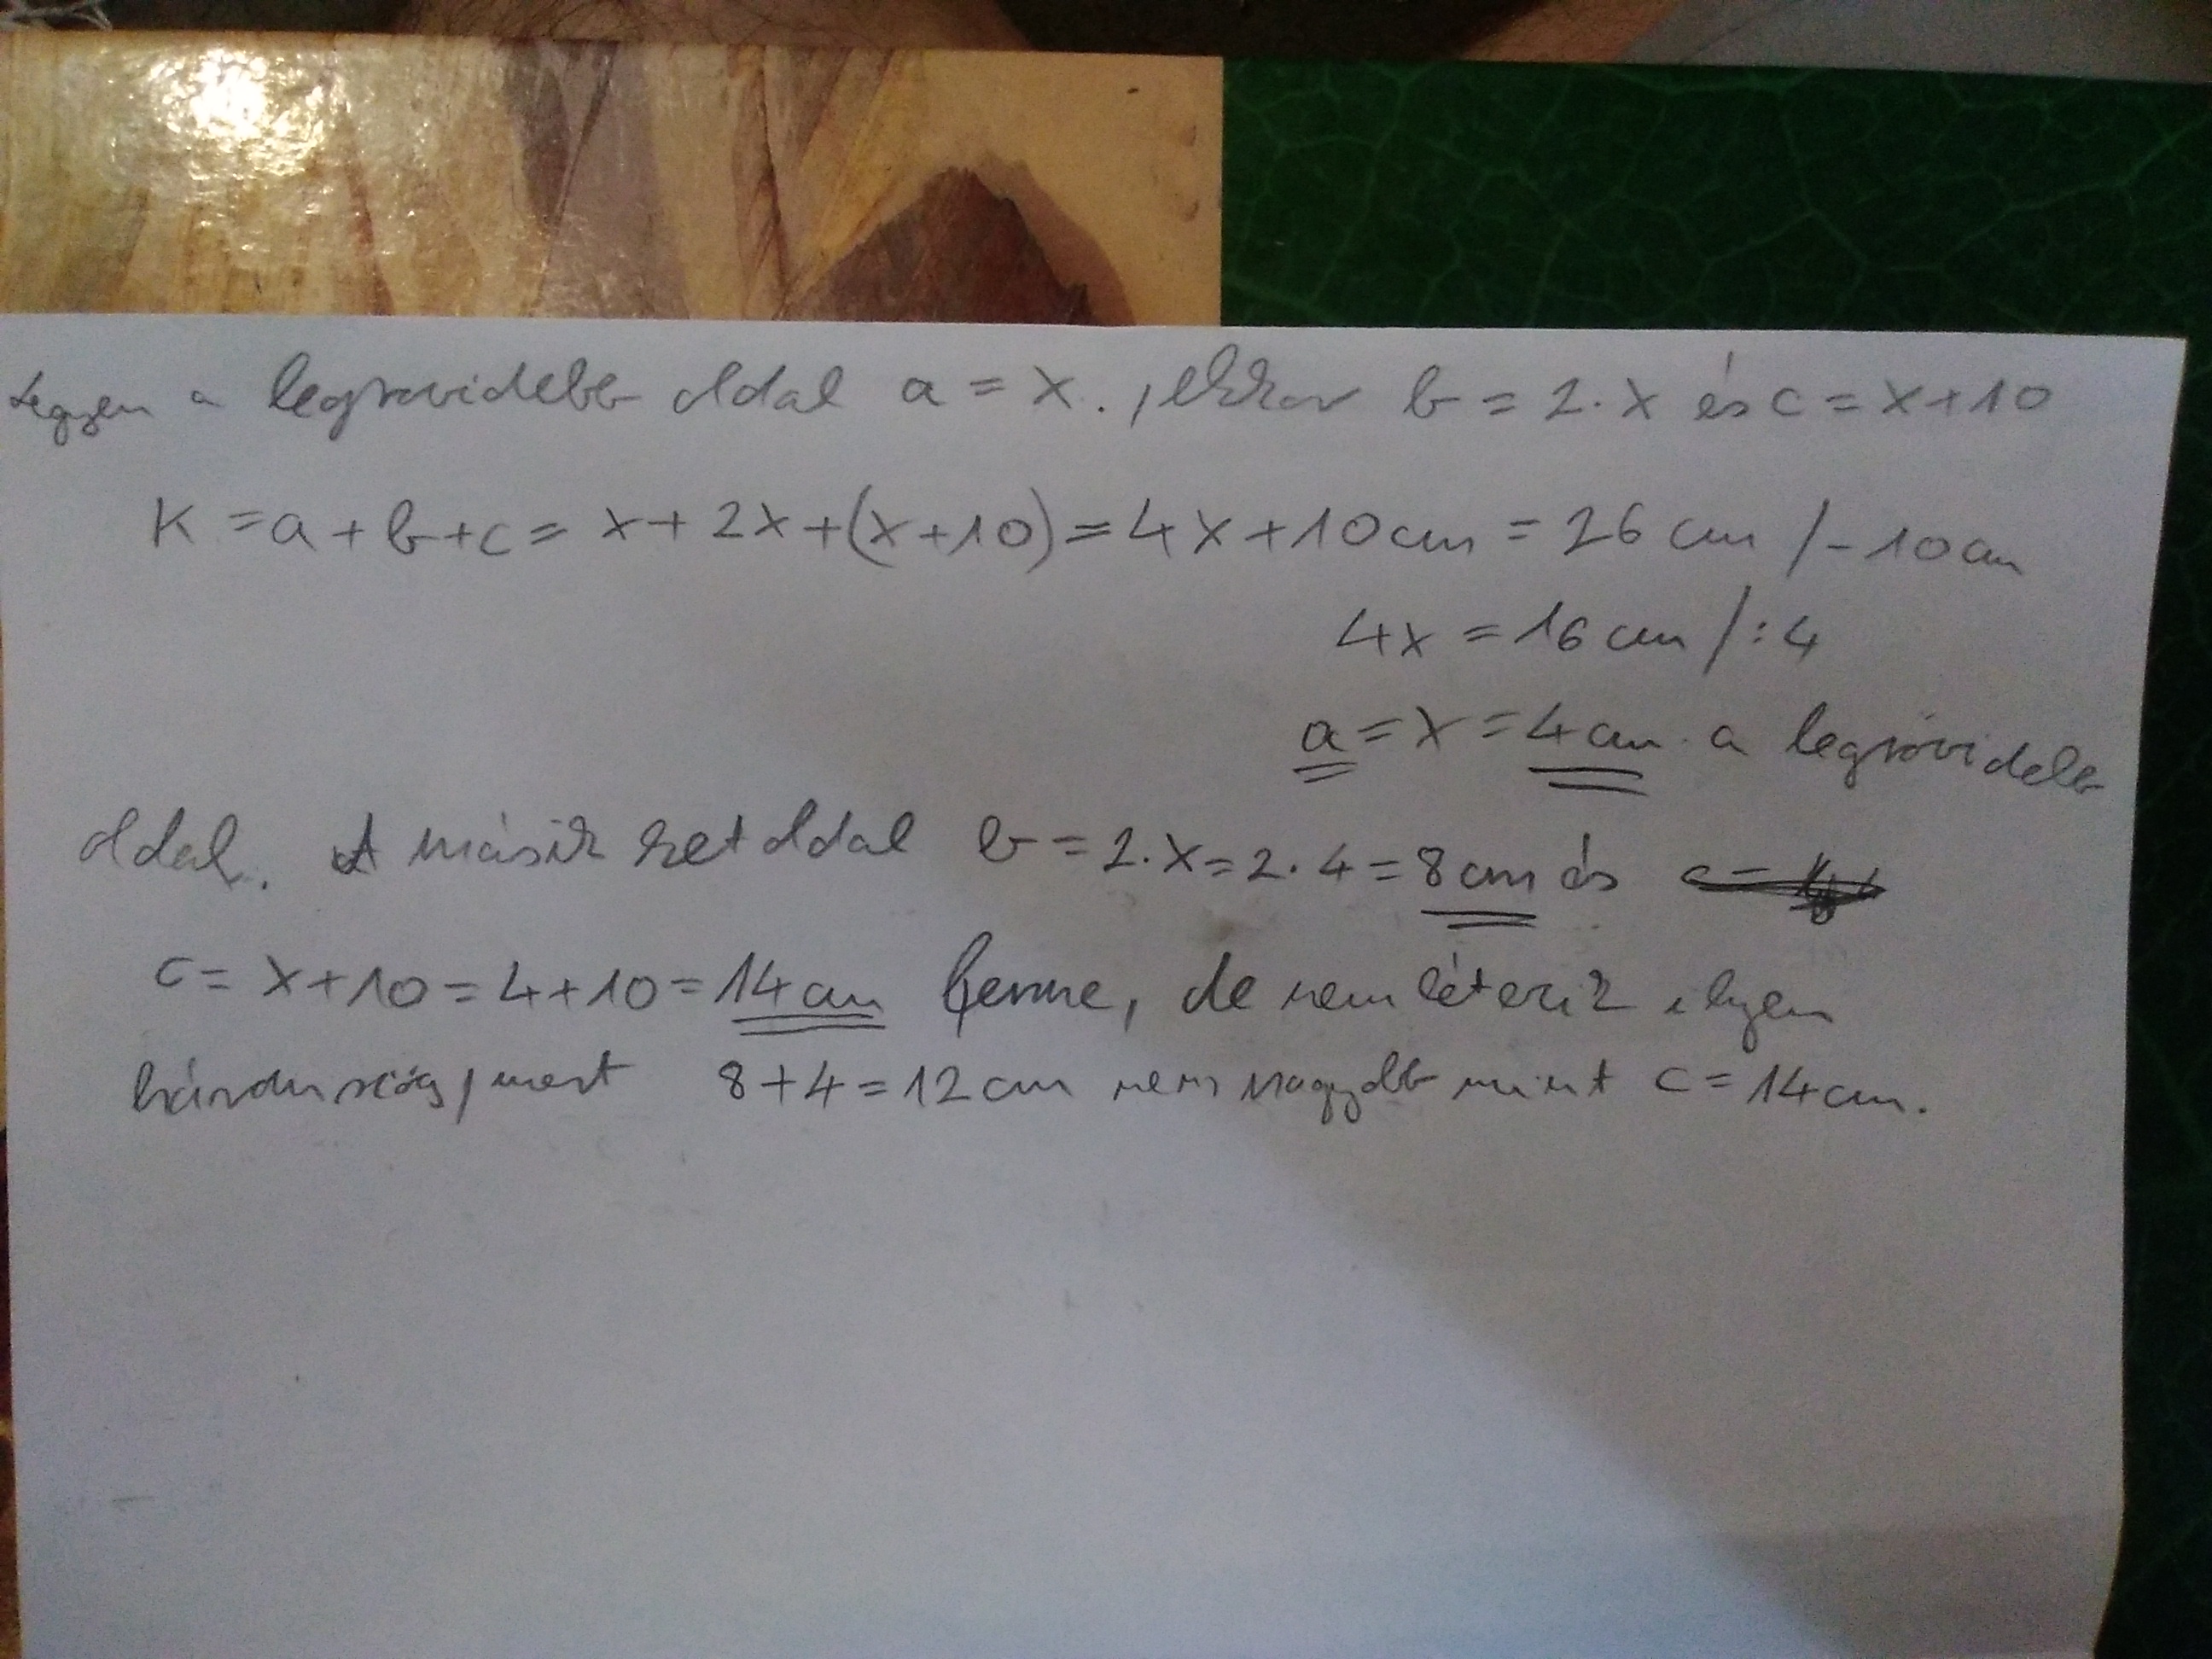 Legyen a legrövidebb oldal a = x., ekkor b = 2·x és c = x+10
K = a + b + c = x + 2x + (x+10) = 4x + 10cm = 26 cm /-10cm
4x = 16 cm /:4
a = x = 4cm a legrövidebb
oldal. A másik két oldal b = 2·x = 2·4 = 8cm és
c = x+10 = 4+10 = 14cm lenne, de nem létezik ilyen
háromszög, mert 8+4 = 12cm nem nagyobb mint c = 14cm.